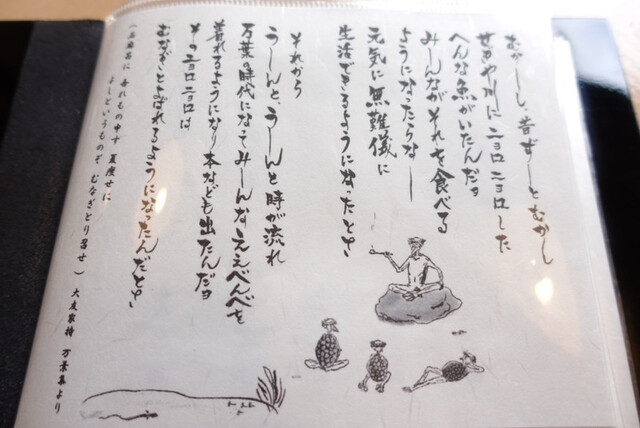 むかーし、昔ずーとむかし
せめや川にニョロニョロした
へんな魚がいたんだョ
みーんながそれを食べる
ようになったらなー
元気に無難儀に
生活できるようになったとさ
それから
うーんと、うーんと時が流れ
万葉の時代になてみーんなええべんべを
着れるようになり本なども出たんだョ
そのニョロニョロは
むなぎとよばれるようになったんだとさ
(石麻呂に 吾れもの申す 夏痩せに
よしというものぞ むなぎとり召せ) 大友家持 万葉集より